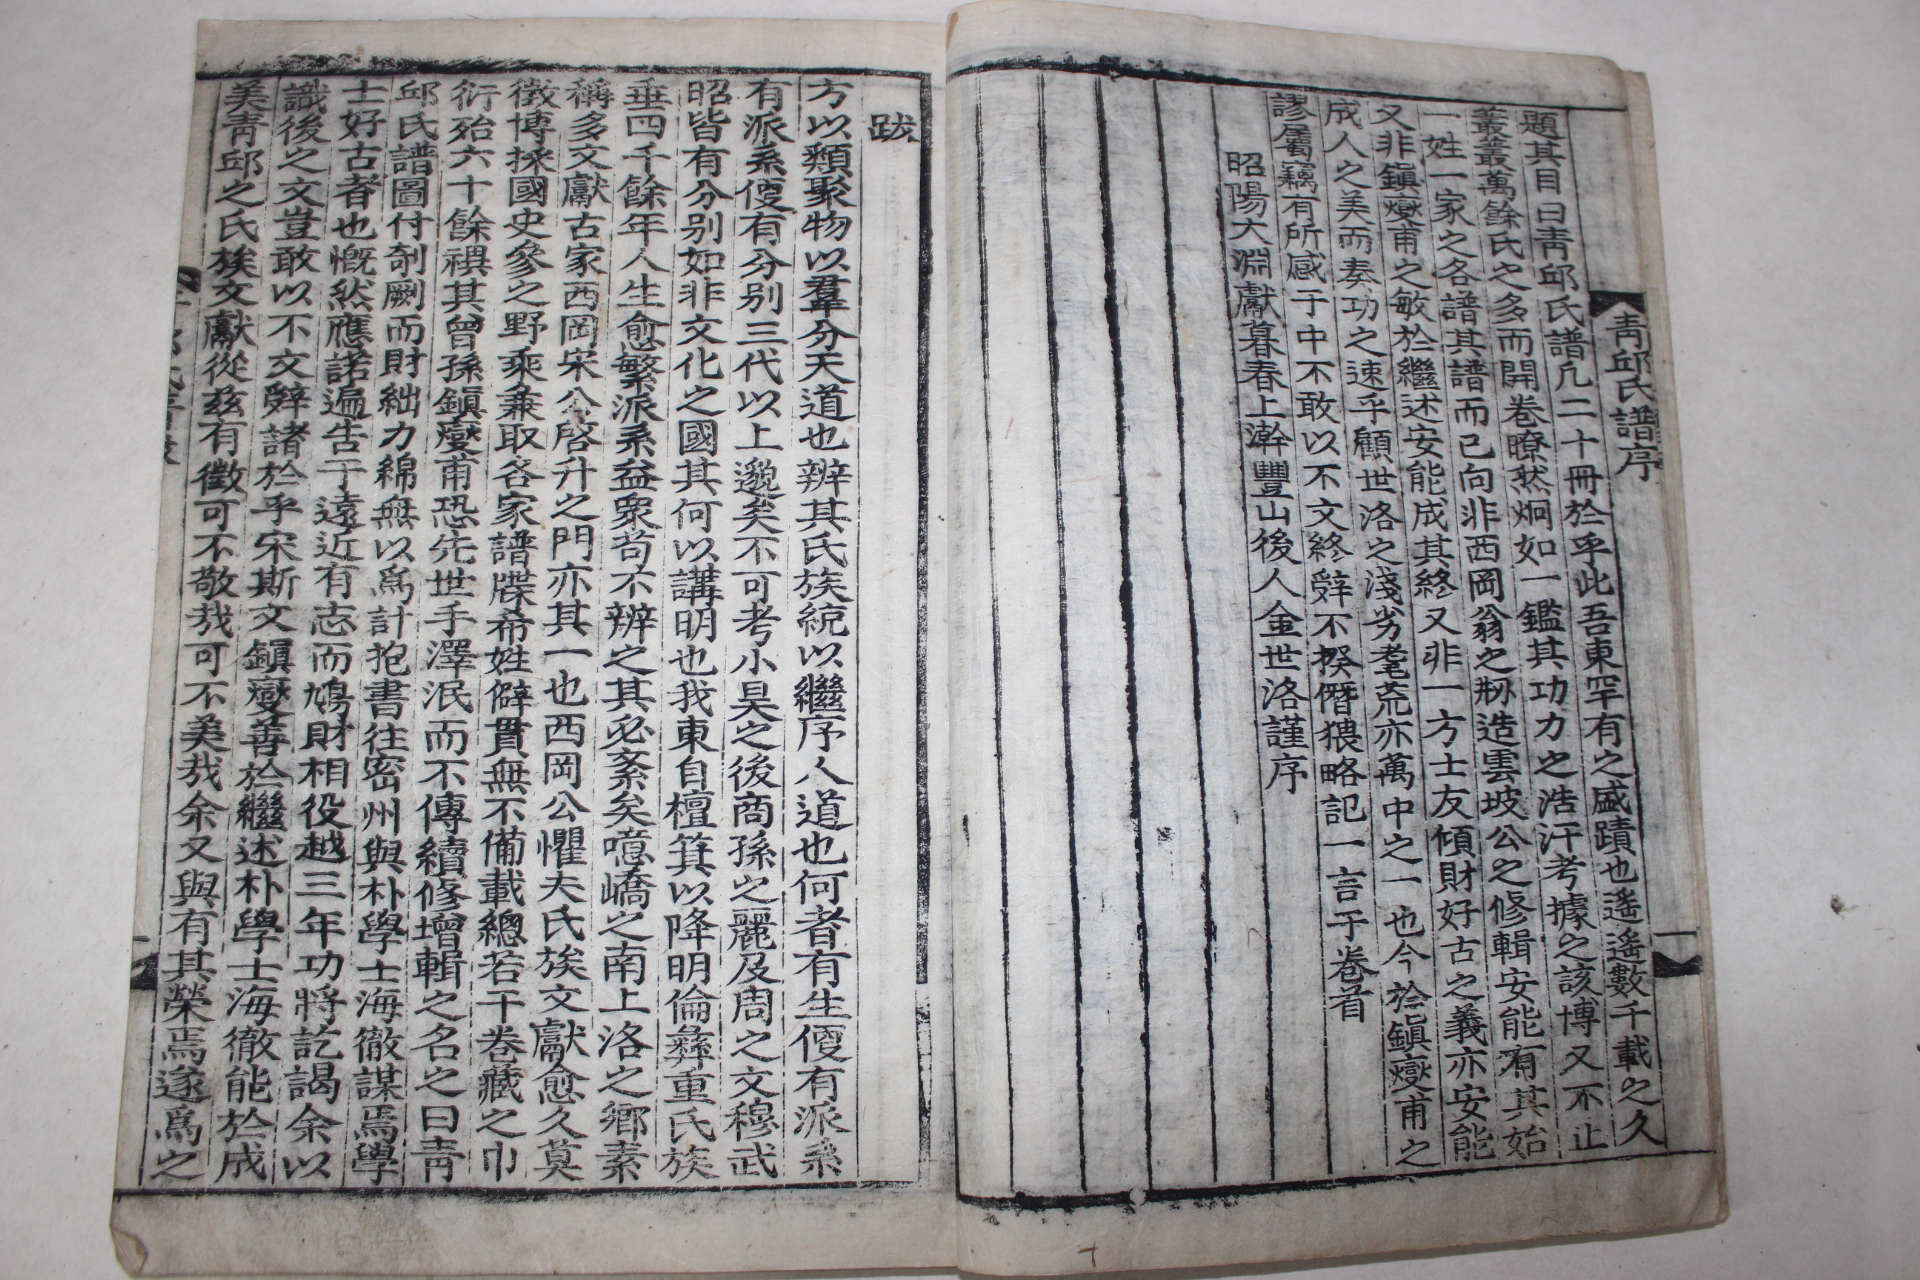 青邱氏譜序
題其目曰靑邱氏譜凡二十冊於乎此吾東罕有之盛蹟也遙遙數千載之久
叢叢萬餘氏之多而開卷瞭然炯如一鑑其功力之浩汗考據之該博又不止
一姓一家之各譜其譜而已向非西岡翁之刱造雲坡公之修輯安能有其始
又非鎭燮甫之敏於繼述安能成其終又非一方士友傾財好古之義亦安能
成人之美而奏功之速乎顧世洛之淺劣耄荒亦萬中之一也今於鎭燮甫之
謬屬竊有所感于中不敢以不文終辭不揆僭猥略記一言于卷首
昭陽大淵獻暮春上澣豐山後人金世洛謹序
跋
方以類聚物以羣分天道也辨其氏族統以繼序人道也何者有生便有派系
有派系便有分別三代以上邈矣不可考小昊之後商孫之麗及周之文穆武
昭皆有分別如非文化之國其何以講明也我東自檀箕以降明倫彝重氏族
垂四千餘年人生愈繁派系益衆苟不辨之其必紊矣噫嶠之南上洛之鄕素
稱多文獻古家西岡宋公啓升之門亦其一也西岡公懼夫氏族文獻愈久莫
徵博採國史參之野乘兼取各家譜牒希姓僻貫無不備載總若干卷藏之巾
衍殆六十餘禩其曾孫鎭燮甫恐先世手澤泯而不傳續修增輯之名之曰靑
邱氏譜圖付剞劂而財絀力綿無以爲計抱書往密州與朴學士海徹謀焉學
士好古者也慨然應諾遍告于遠近有志而鳩財相役越三年功將訖謁余以
識後之文豈敢以不文辭諸於乎宋斯文鎭燮善於繼述朴學士海徹能於成
美靑邱之氏族文獻從玆有徵可不敬哉可不美哉余又與有其榮焉遂爲之